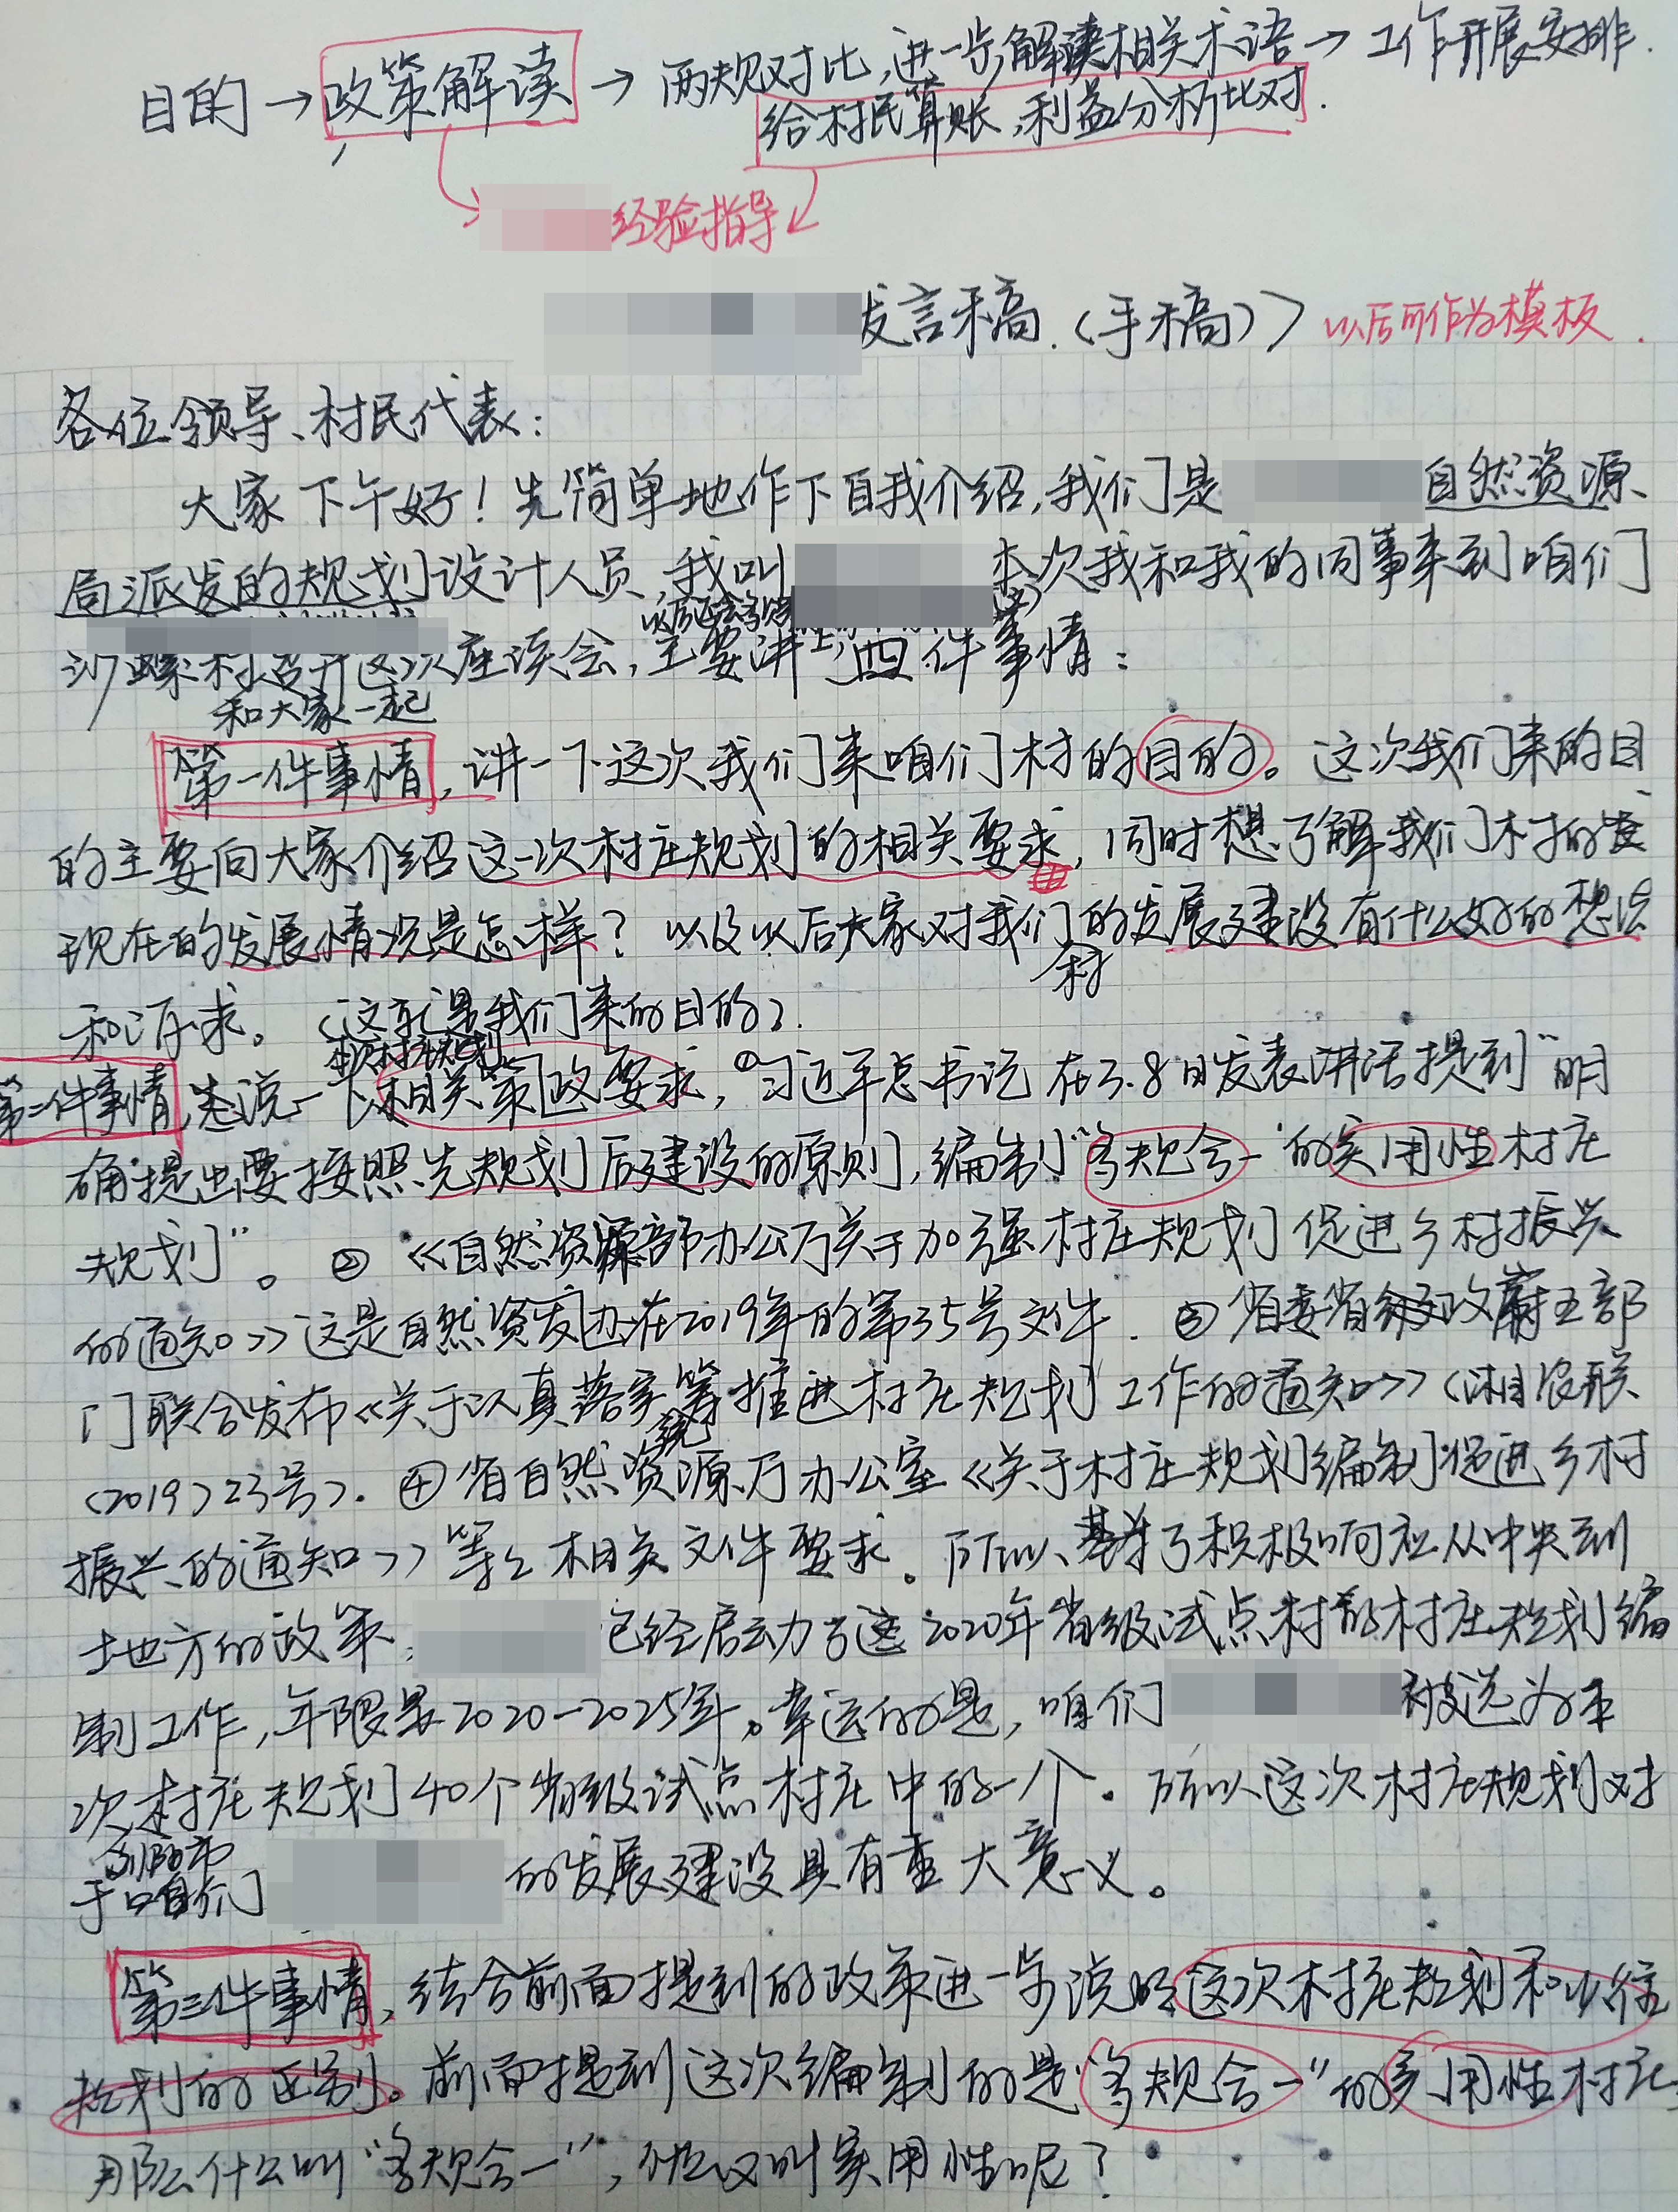 目的→政策解读→两规对比,进一步解读相关术语→工作开展安排.
给村民算账,利益分析比对.
经验指导
发言稿.(手稿)》 以后可作为模板.
各位领导、村民代表:
大家下午好!先简单地作下自我介绍,我们是 自然资源
局派发的规划设计人员,我叫 本次我和我的同事来到咱们
村召开这次座谈会,主要讲四件事情:
和大家一起
第一件事情,讲一下这次我们来咱们村的目的。这次我们来的目
的主要向大家介绍这一次村庄规划的相关要求,同时想了解我们村的发
现在的发展情况是怎样?以及以后大家对我们的发展建设有什么好的想法
村
和诉求。(这就是我们来的目的).
本次村庄规划
第二件事情,先说一下相关策政要求,①习近平总书记在3.8日发表讲话提到“明
确提出要按照先规划后建设的原则,编制“多规合一”的实用性村庄
规划”。②《自然资源部办公厅关于加强村庄规划促进乡村振兴
的通知》这是自然资发办在2019年的第35号文件.③省委省政府五部
门联合发布《关于认真落实统筹推进村庄规划工作的通知》(湘农联
(2019)23号).④省自然资源厅办公室《关于村庄规划编制促进乡村
振兴的通知》等等相关文件要求。所以,基于积极响应从中央到
地方的政策, 已经启动了这2020年省级试点村的村庄规划编
制工作,年限是2020-2025年。幸运的是,咱们 被选为本
次村庄规划40个省级试点村庄中的一个。所以这次村庄规划对
浏阳市
于咱们 的发展建设具有重大意义。
第三件事情,结合前面提到的政策进一步说明这次村庄规划和以往
规划的区别。前面提到这次编制的是“多规合一”的实用性村庄
那么什么叫“多规合一”,什么又叫实用性呢?